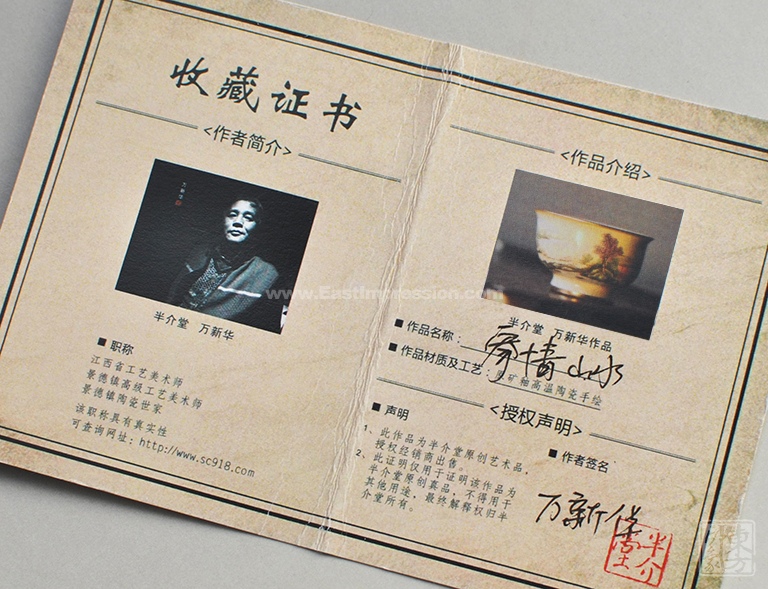 收藏证书
<作者简介>
半介堂 万新华
■ 职称
江西省工艺美术师
景德镇高级工艺美术师
景德镇陶瓷世家
该职称具有真实性
可查询网址：http://www.sc918.com
<作品介绍>
半介堂 万新华作品
■ 作品名称：
山水
■ 作品材质及工艺：
矿釉高温陶瓷手绘
<授权声明>
■ 声明
1、此作品为半介堂原创艺术品，
授权经销商出售。
2、此证明仅用于证明该作品为
半介堂原创真品，不得用于
其他用途，最终解释权归半
介堂所有。
■ 作者签名
万新华
半介堂
www.EastImpression.com